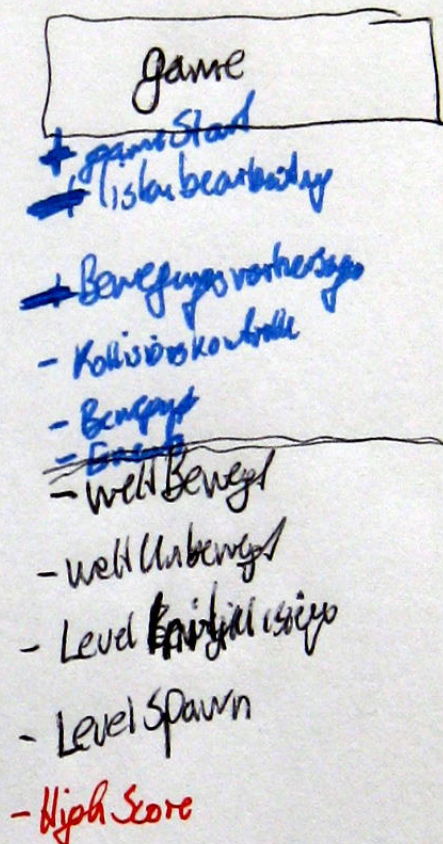 game
+ gameStart
+ listenbearbeitung
+ Bewegungsvorhersage
- Kollisionskontrolle
- Bewegt
- weltBewegt
- weltUnbewegt
- Level
- LevelSpawn
- HighScore